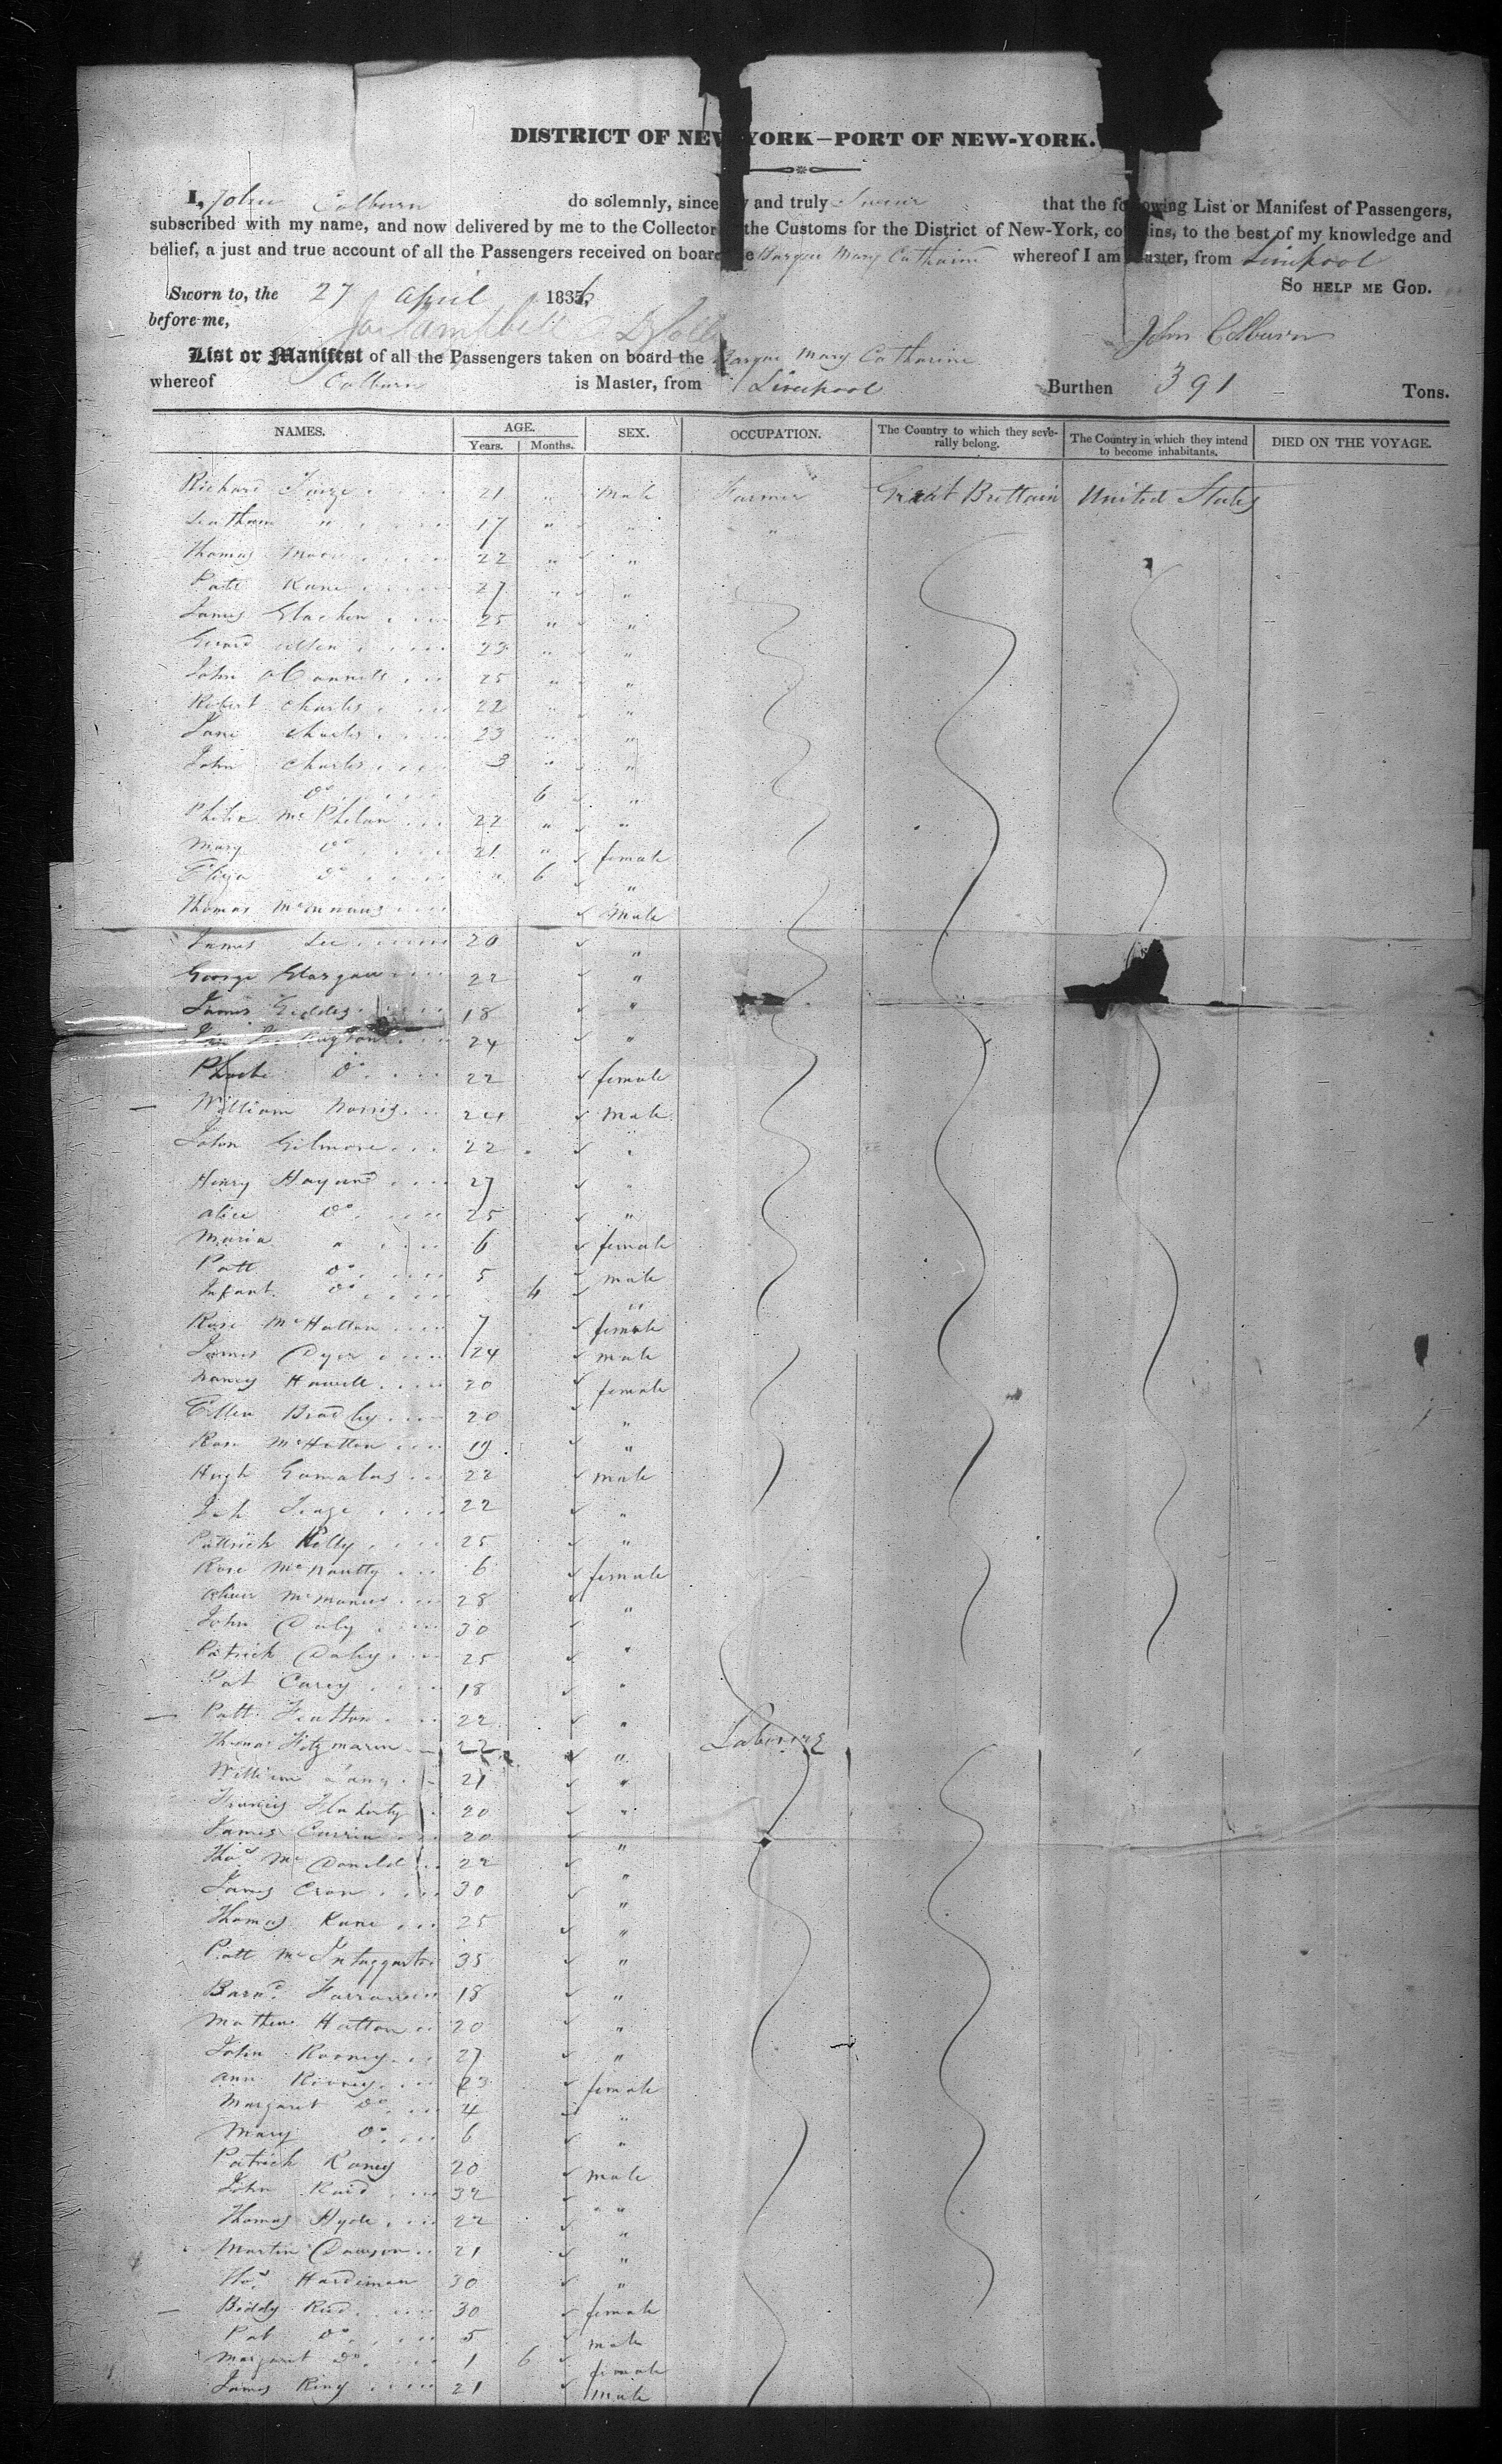 DISTRICT OF NEW YORK—PORT OF NEW-YORK.
I, John Colburn do solemnly, since y and truly Swear that the following List or Manifest of Passengers,
subscribed with my name, and now delivered by me to the Collector the Customs for the District of New-York, co ins, to the best of my knowledge and
belief, a just and true account of all the Passengers received on board e Barque Mary Catharine whereof I am Master, from Liverpool
Sworn to, the 27 April 1836, SO HELP ME GOD.
before me, John Colburn
List or Manifest of all the Passengers taken on board the Barque Mary Catharine
whereof Colburn is Master, from Liverpool Burthen 391 Tons.
NAMES. AGE. Years. Months. SEX. OCCUPATION. The Country to which they severally belong. The Country in which they intend to become inhabitants. DIED ON THE VOYAGE.
Richard 21 " Male Farmer Great Brittain United States
" 17 " " "
Thomas Moore 22 " "
Patt Kane 27 " "
James 25 " "
23 " "
John 25 " "
Robert Charles 22 " "
Jane Charles 23 " "
John Charles 3 " "
Do 6 "
McPhelan 22 " "
Mary Do 21 " female
Eliza Do " 6 "
Thomas McManus Male
James Lee 20 "
George Glasgow 22 "
James Geddes 18 "
24 "
Phoebe Do 22 female
William Norris 24 Male
John Gilmore 22 "
Henry 27 "
Alice Do 25 "
Maria " 6 female
Patt Do 5 male
Infant Do 4 "
Rose McHatton 7 female
James Dyer 24 male
Nancy Howell 20 female
Ellen Bradley 20 "
Rose McHatton 19 "
Hugh 22 male
22 "
Pattrick Kelly 25 "
Rose McNaulty 6 female
Oliver McManus 28 "
John Daly 30
Patrick Daley 25 "
Pat Carey 18 "
Patt 22 "
Thomas 22 " Laborers
William 21 "
Francis Flaherty 20 "
James Currin 20 "
Thos McDonald 22 "
James Cron 30 "
Thomas Kane 25 "
Patt McIntaggart 35 "
Barnd 18 "
Mathew Hatton 20 "
John Rooney 27 "
Ann Rooney 23 female
Margaret Do 4 "
Mary Do 6 "
Patrick Raney 20 male
John Reid 32 " "
Thomas Hyde 22 "
Martin Dawson 21 "
Thos Hardiman 30 "
Biddy Reid 30 female
Pat Do 5 male
Margaret Do 1 6 female
James King 21 male